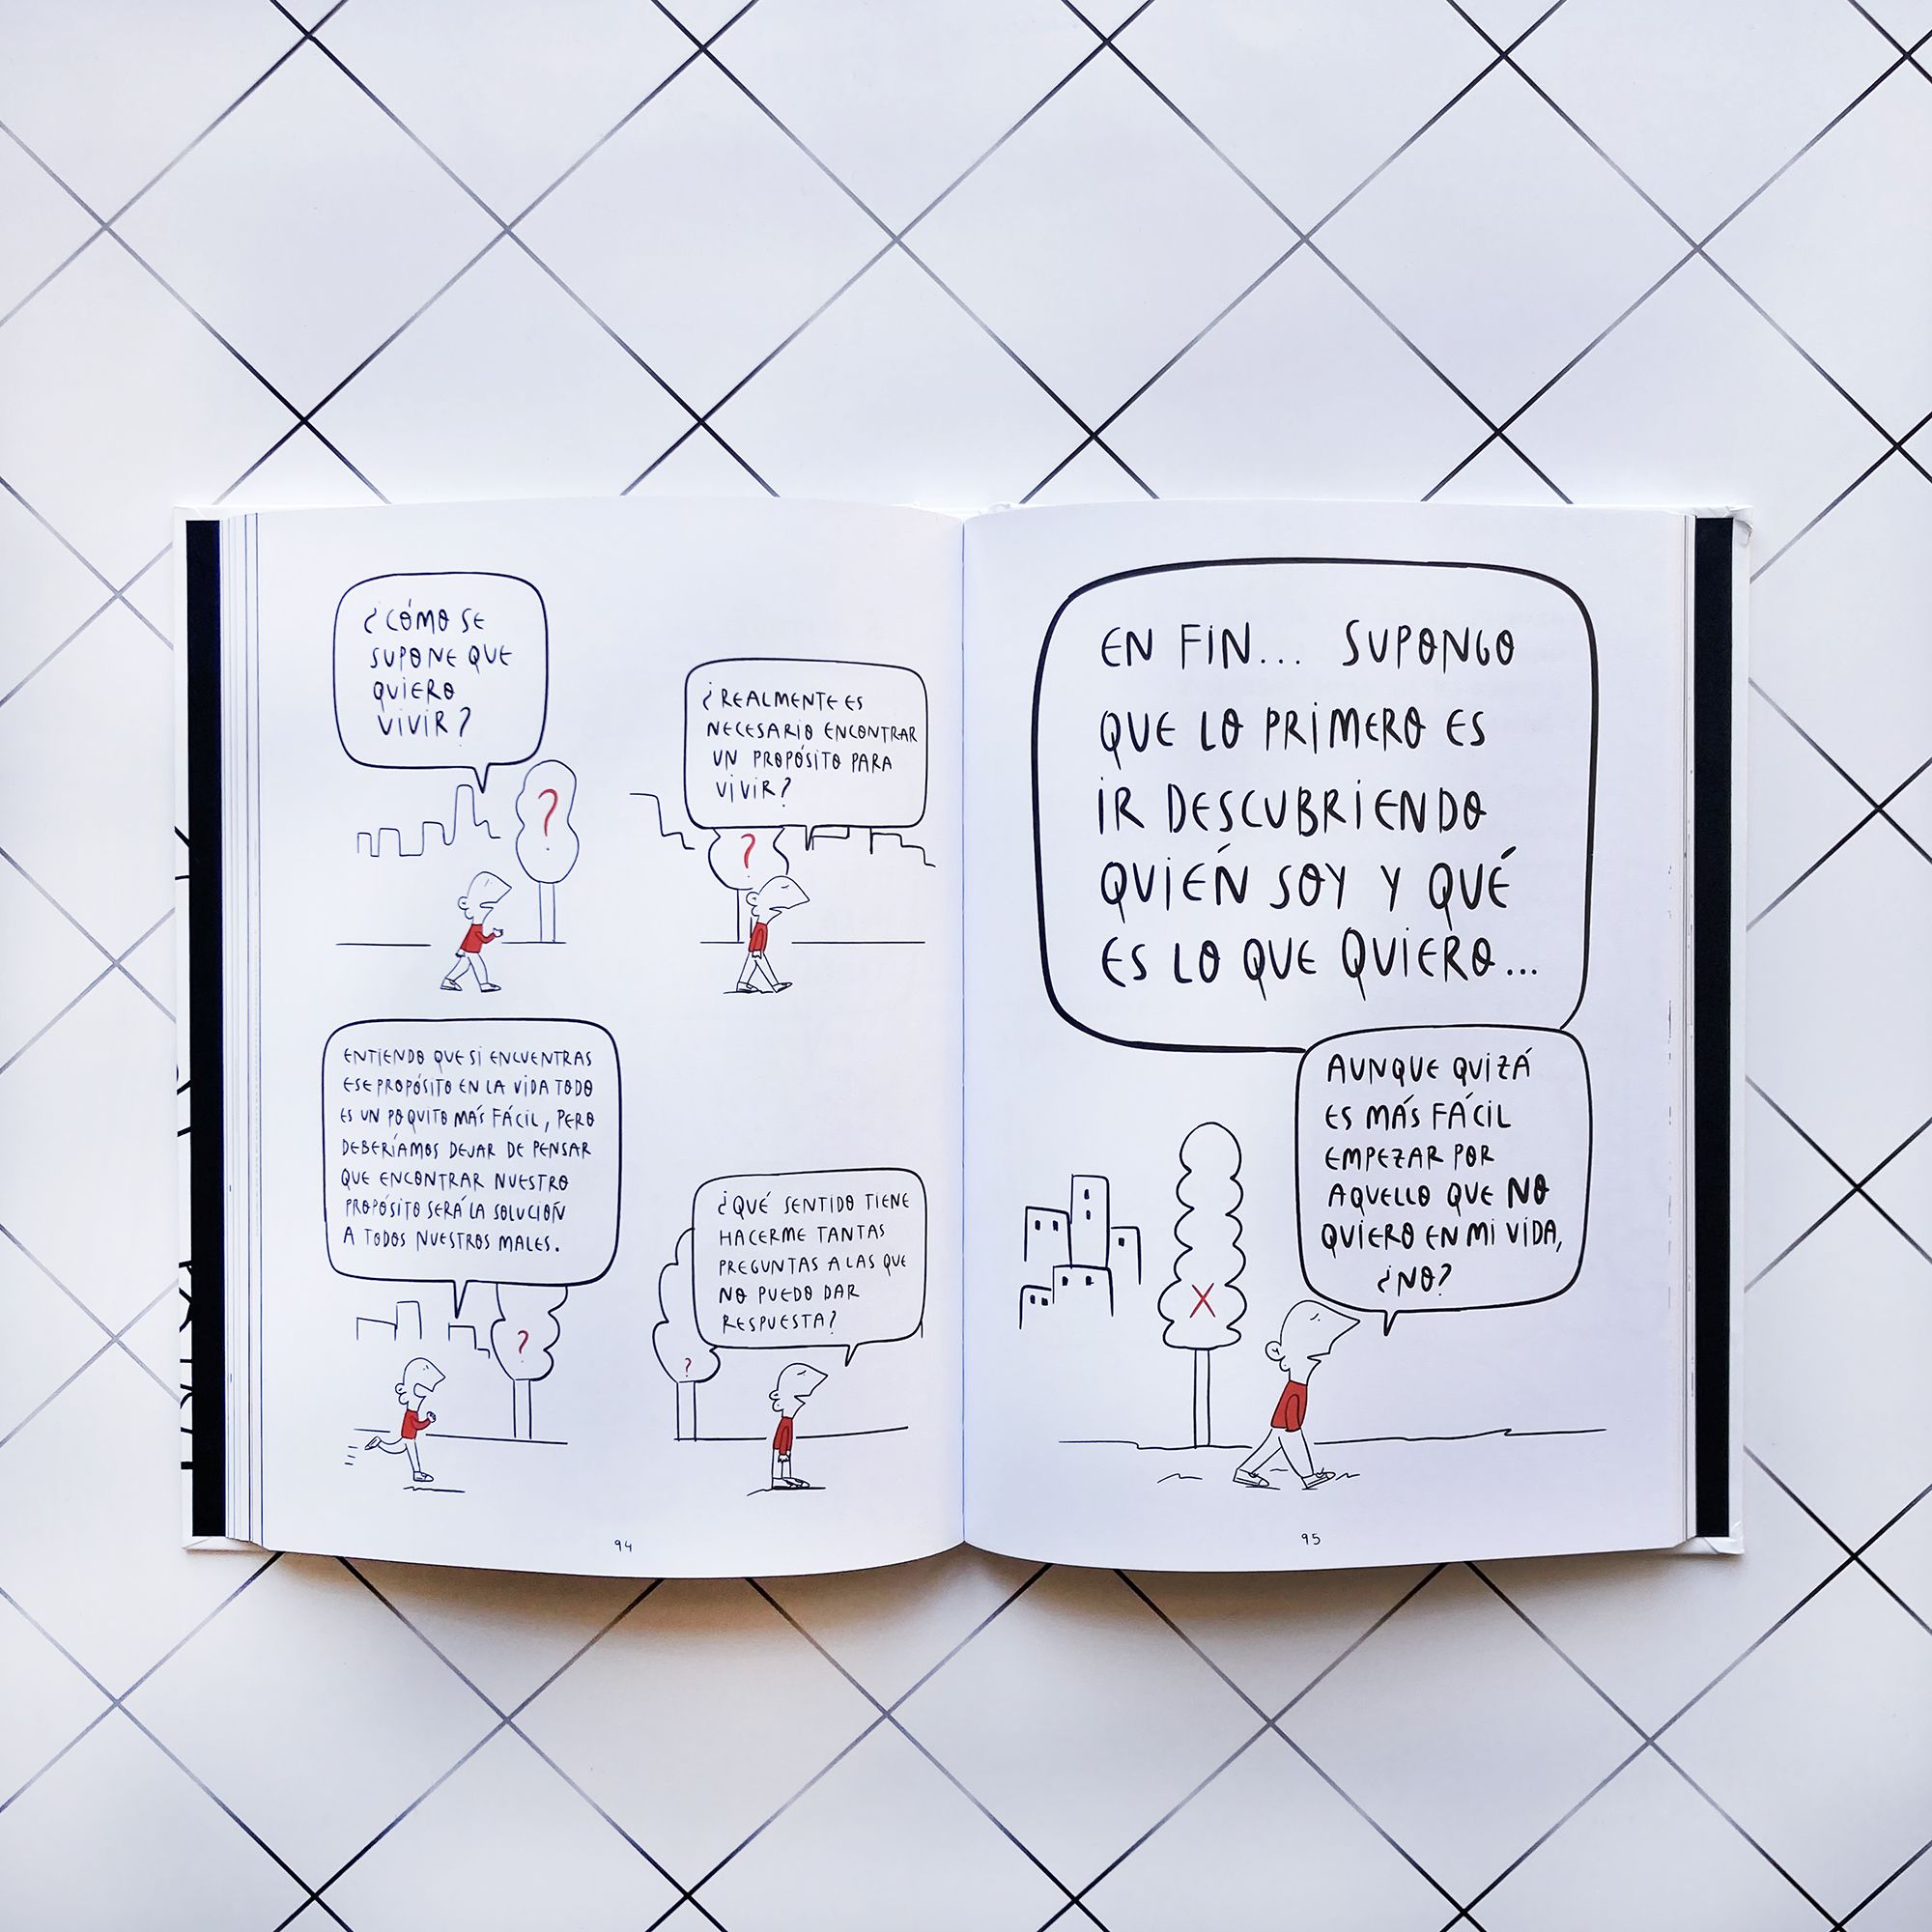 ¿CÓMO SE
SUPONE QUE
QUIERO
VIVIR?
¿REALMENTE ES
NECESARIO ENCONTRAR
UN PROPÓSITO PARA
VIVIR?
?
?
ENTIENDO QUE SI ENCUENTRAS
ESE PROPÓSITO EN LA VIDA TODO
ES UN POQUITO MÁS FÁCIL, PERO
DEBERÍAMOS DEJAR DE PENSAR
QUE ENCONTRAR NUESTRO
PROPÓSITO SERÁ LA SOLUCIÓN
A TODOS NUESTROS MALES.
¿QUÉ SENTIDO TIENE
HACERME TANTAS
PREGUNTAS A LAS QUE
NO PUEDO DAR
RESPUESTA?
?
?
94
EN FIN... SUPONGO
QUE LO PRIMERO ES
IR DESCUBRIENDO
QUIÉN SOY Y QUÉ
ES LO QUE QUIERO...
AUNQUE QUIZÁ
ES MÁS FÁCIL
EMPEZAR POR
AQUELLO QUE NO
QUIERO EN MI VIDA,
¿NO?
X
95